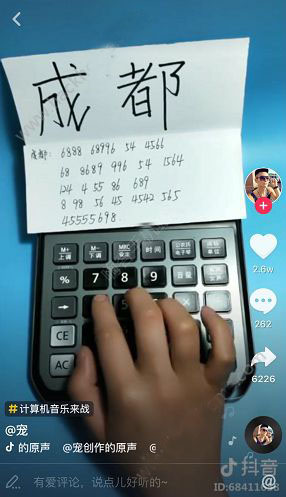 成都
成都: 6888 68996 54 4566
68 8689 996 54 1564
124 4 55 86 689
8 98 56 45 4542 565
45555698
M+
上调
M-
下调
MRC
安定
时间
%
7
8
9
音量
→
5
CE
AC
2.6w
262
6226
#计算机音乐来战
@宠
的原声 @宠创作的原声
有爱评论,说点儿好听的~
@
抖音